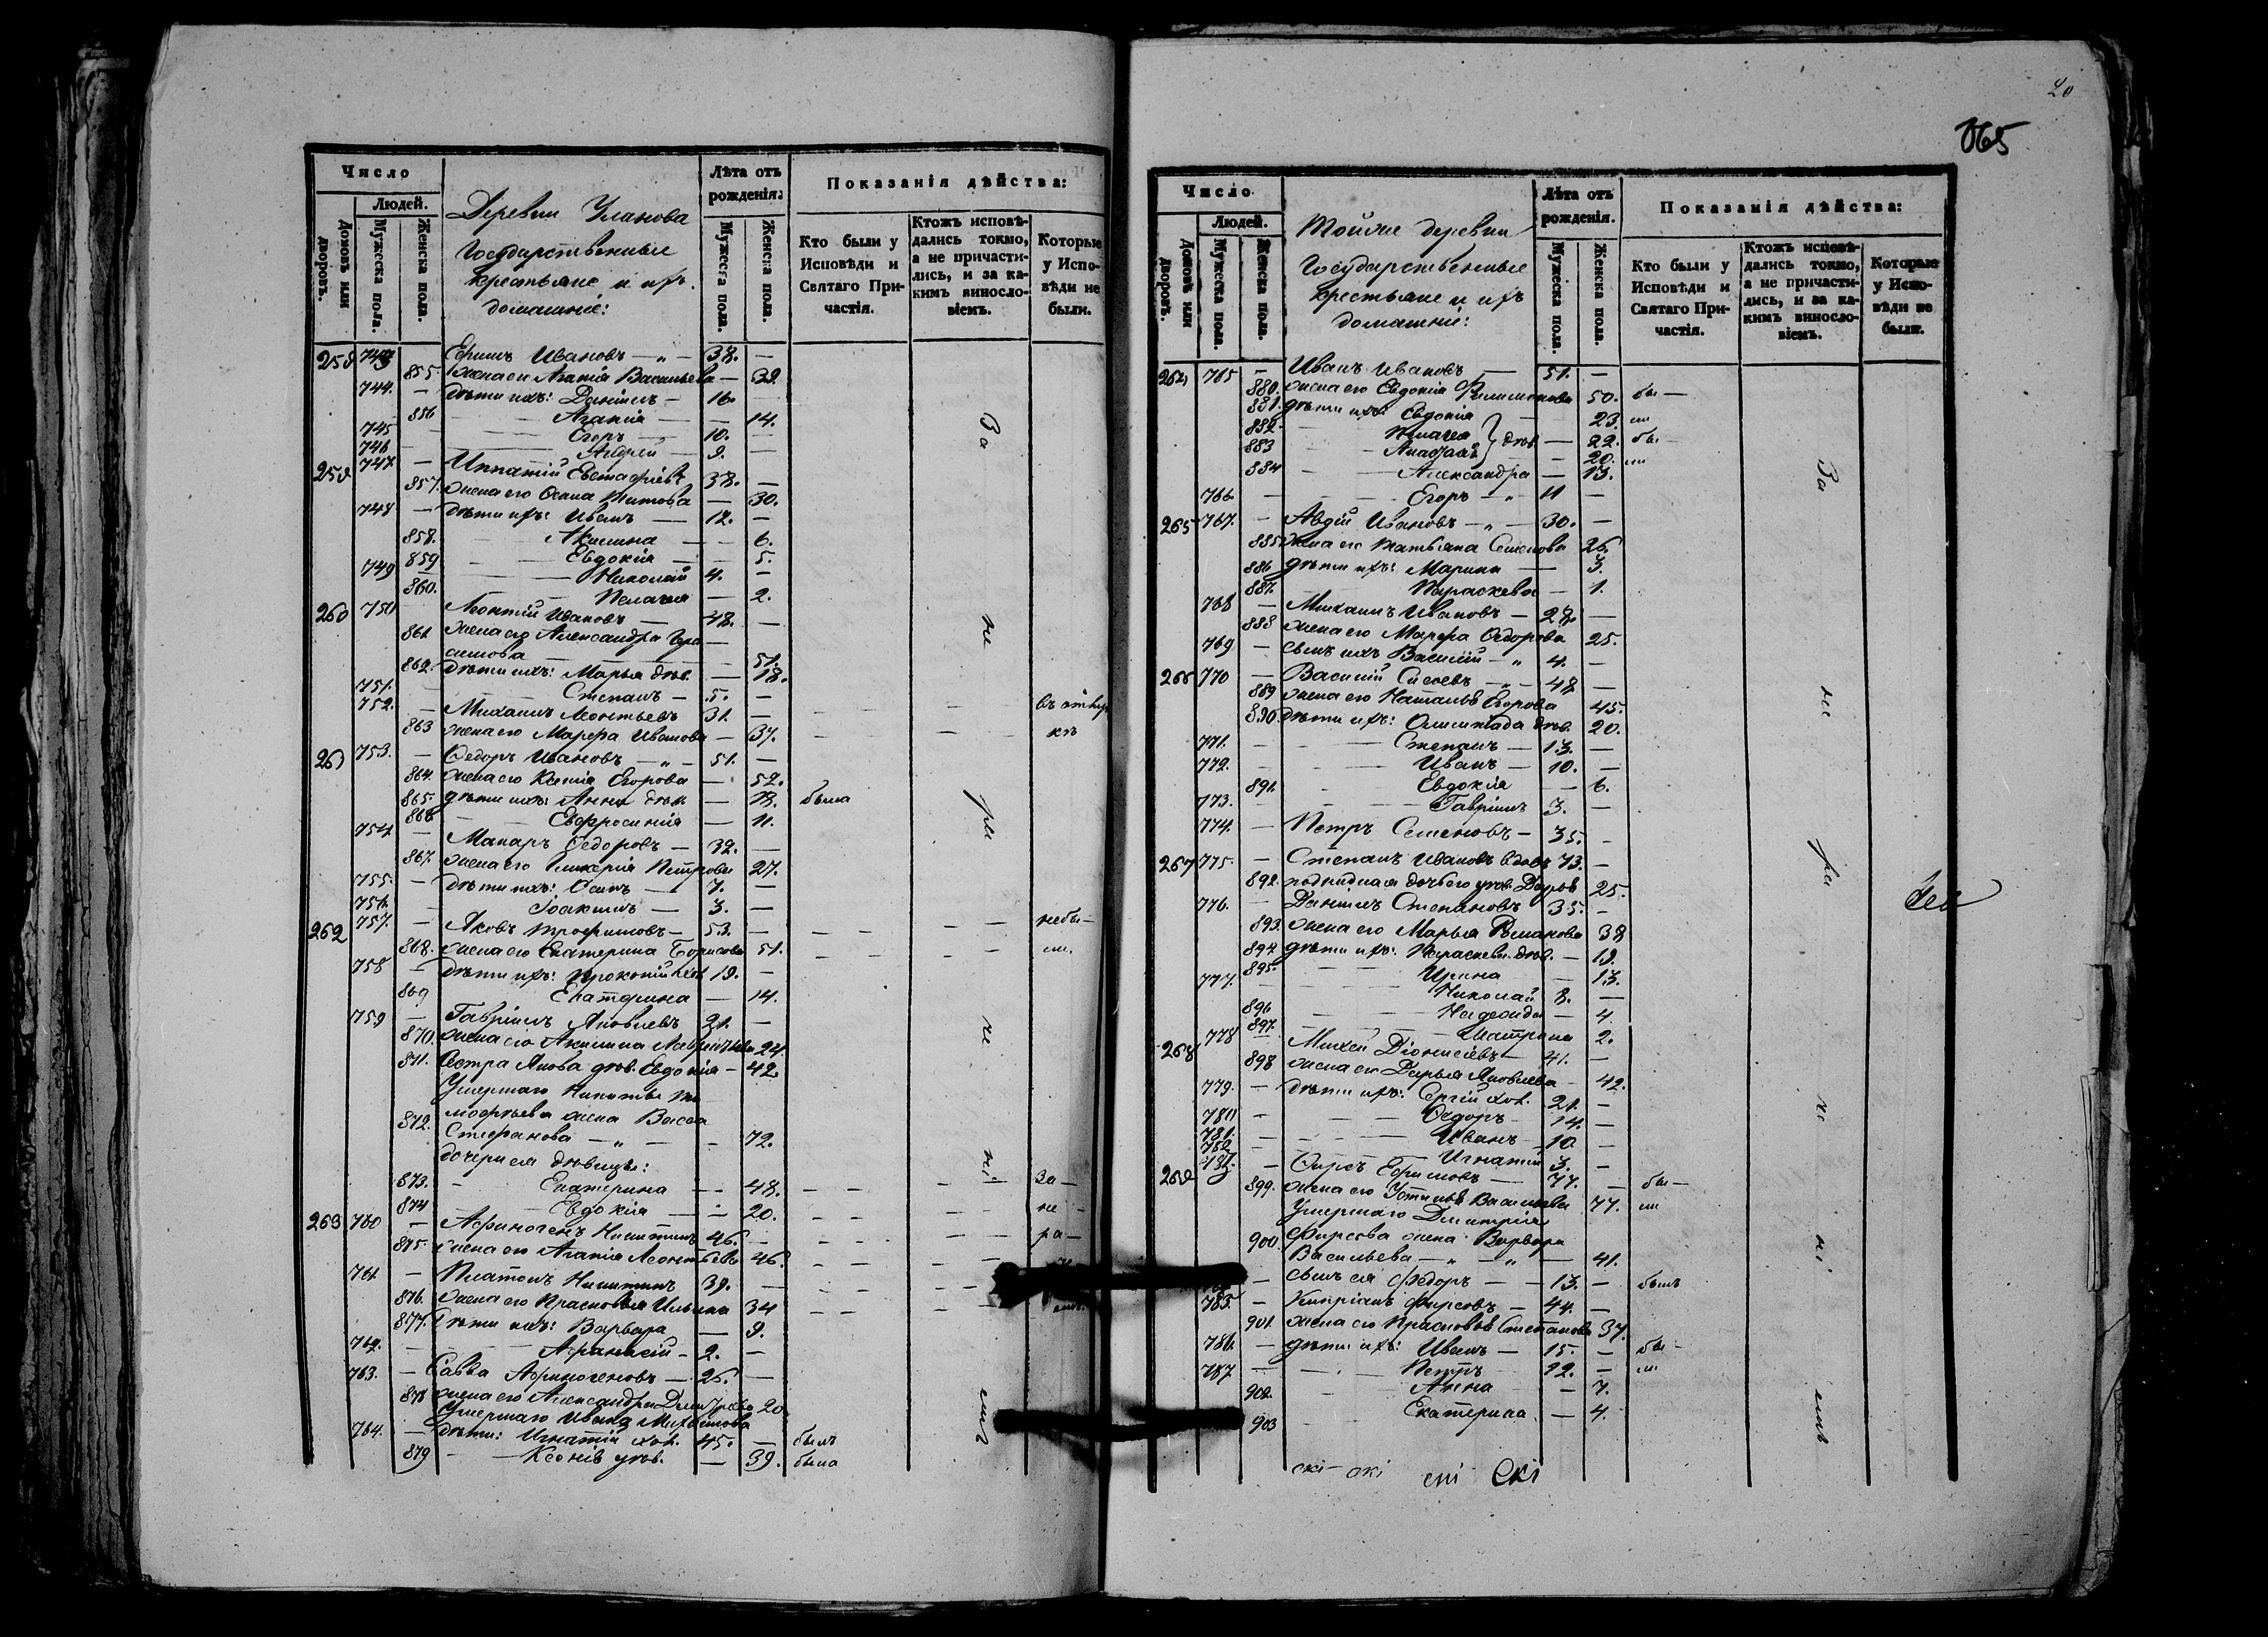 Число
Людей.
Домовъ или дворовъ.
Мужеска пола.
Женска пола.
Деревни Уланова
Государственные
крестьяне и ихъ
домашніе:
Лѣта отъ рожденія:
Мужеска пола.
Женска пола.
Показанія дѣйства:
Кто были у Исповѣди и Святаго Причастія.
Ктожъ исповѣдались токмо, а не причастились, и за какимъ винословіемъ.
Которые у Исповѣди не были.
743 Ефимъ Ивановъ — 38. —
855. жена его Агапія Васильева — 39.
744. — дѣти ихъ: Даніилъ — 16.
856 Агапія — 14.
745 Егоръ — 10. —
746 Андрей — 9. —
259 747 — Ипатій Евстафіевъ 38. —
857. жена его Титова — 30.
748 — дѣти ихъ: Иванъ — 12. —
858. Акилина — 6.
859 Евдокія — 5.
749 Николай 4. —
860. Пелагея — 2.
260 750 Леонтій Ивановъ — 48. —
861 жена его Александра Гера-
симова — 51.
862. дѣти ихъ: Марья дѣв. — 18.
751. Степанъ — 5. —
752. Михаилъ Леонтьевъ 31. —
863 жена его Марфа Иванова — 37.
261 753. — Ѳедоръ Ивановъ — 51. —
864. жена его Ксенія Егорова — 52.
865. дѣти ихъ: Анна дѣв. — 18. была
866 Евфросинія — 11.
754 — Макаръ Ѳедоровъ — 32. —
867. жена его Гликерія Петрова 27.
755. — дѣти ихъ: Осипъ — 7. —
756. Іоакимъ — 3. —
262 757. — Яковъ Трофимовъ — 53. — небы-
868. жена его Екатерина Борисова 51. ли.
758 — дѣти ихъ: Прокопій хол. 19. —
869 Екатерина — 14.
759 — Гавріилъ Яковлевъ 21. —
870. жена его Акилина 24.
871. Сестра Якова дѣв. Евдокія — 42.
Умершаго Никиты Ти-
моѳеева жена Васса
872. Стефанова — 72.
дочери ея дѣвицы:
873. Екатерина — 48. За-
874 Евдокія — 20. не
263 760 — Афиногенъ Никитинъ 46. — ра-
875. жена его Агапія Леонтьева 46.
761. — Платонъ Никитинъ 39. —
876. жена его Прасковья Ильина 34
877. Дѣти ихъ: Варвара — 9.
762. Афанасій — 2. —
763. — Савва Афиногеновъ — 26. —
878 жена его Александра 20
Умершаго Ивана
764. — дѣти: Игнатій хол. 45. — былъ
879 — Ксенія дѣв. — 39. была
За не ра че ні емъ
20
065
Число
Людей.
Домовъ или дворовъ.
Мужеска пола.
Женска пола.
Тойже деревни
Государственные
крестьяне и ихъ
домашніе:
Лѣта отъ рожденія.
Мужеска пола.
Женска пола.
Показанія дѣйства:
Кто были у Исповѣди и Святаго Причастія.
Ктожъ исповѣдались токмо, а не причастились, и за какимъ винословіемъ.
Которые у Исповѣди не были.
264 765 — Иванъ Ивановъ — 51. —
880. жена его Евдокія Филимонова 50. бы-
881. дѣти ихъ: Евдокія — 23. ли
882. Пелагея дѣв. — 22. бы-
883 — 20. ли
884 Александра — 13.
766 — Егоръ — 11 —
265 767. — Авдій Ивановъ — 30. —
885 жена его Татьяна Семенова 26.
886 дѣти ихъ: Марина — 3.
887. Параскева — 1.
768 — Михаилъ Ивановъ — 28. —
888 жена его Марфа Ѳедорова 25.
769 — сынъ ихъ Василій — 4. —
266 770 — Василій Сысоевъ — 48 —
889 жена его Наталья Егорова 45.
890. дѣти ихъ: Олимпіада дѣв. 20.
771. — Степанъ — 13. —
772. — Иванъ — 10. —
891. Евдокія — 6.
773. Гавріилъ 3. —
774. — Петръ Семеновъ — 35. —
267 775. — Степанъ Ивановъ вдовъ 73. —
892. 25.
776. — Даніилъ Степановъ 35. —
893. жена его Марья Романова 38
894 дѣти ихъ: Параскева дѣв. — 19.
895. Ирина — 13.
777. Николай 8. —
896 Надежда — 4
897. Матрона 2.
268 778 — Михей Діонисіевъ — 41. —
898 жена его Дарья Яковлева — 42.
779. — дѣти ихъ: Сергій хол. 21. —
780 — Ѳедоръ — 14. —
781. — Иванъ — 10. —
782 — Игнатій 3. —
269 — Фирсъ Ефимовъ — 77. — бы-
899. жена его Устинья Васильева 77. ли
Умершаго Дмитрія
900. Фирсова жена Варвара
Васильева — 41.
— сынъ ея Ѳедоръ — 13. — былъ
785. — Кипріанъ Фирсовъ — 44. —
901. жена его Прасковья Степанова 37.
786. — дѣти ихъ: Иванъ — 15. — бы-
787 — Петръ 12. — ли
902. Анна — 7.
903 Екатерина — 4.
За не ра че ні емъ